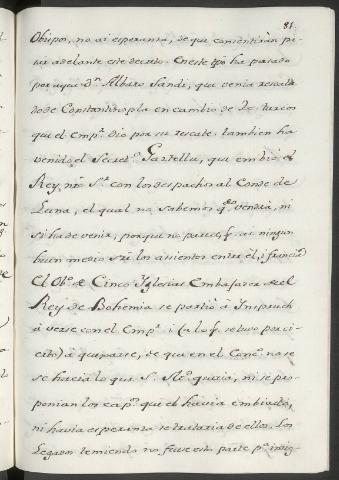 81.
Obispos, no ai esperanza, de que consentiràn pa-
sar adelante este decreto. En este tpõ ha pasado
por aqui Dn. Albaro Sandi, que venia rescata-
do de Constantinopla en cambio de los turcos
que el Empr. dio por su rescate. tambien ha
venido el Secretº. Gaztellu, que embiò el
Rey, nrõ Sr. con los despachos al Conde de
Luna, el qual no sabemos qdo. vendrà, ni
si ha de venir, porque no parece, q. ai ningun
buen medio sre los asientos entre èl, i francia
El Obº. de Cinco Iglesias Embajador del
Rey de Bohemia se partiò à Inspruch
à verse con el Empr. i (a lo q. se tuvo por ci-
erto) à quejarse, de que en el Conc. no se
se hacia lo que S. Md. queria, ni se pro-
ponian los capos. que èl havia embiado,
ni havia esperanza se trataria de ellos. Los
Legados temiendo no fuese esto parte pa.